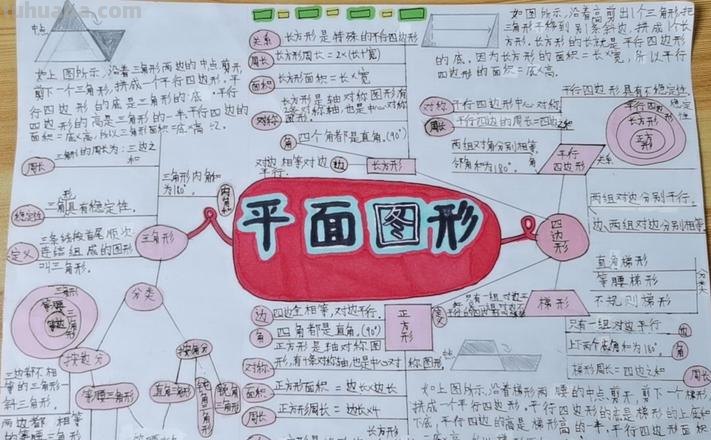 tuhuaxa.com
如上图所示,沿着三角形两边的中点,剪开,
剪下一个三角形,拼成一个平行四边形,平
行四边形的底是三角形的底,平行四边形
的高是三角形的一半,平行四边的
面积=底×高,所以三角形面积=底×高÷2.
周长
三角形的周长为:三边之
和
三角形内角和
为180°.
内角和
稳定性
三角形具有稳定性.
定义
三条线段首尾顺次
连结组成的图形
叫三角形.
三角形
分类
三角形
等腰
等边
按边分
按角分
三边都不相
等的三角形
斜三角形
等腰三角形
直角三角形
钝角三角形
锐角三角形
两边都相
等的等腰三角形
关系
长方形是特殊的平行四边形
周长
长方形周长=2×(长+宽)
面积
长方形面积=长×宽
对称
长方形是轴对称图形有
条对称轴,也是中心对称
图形
角
四个角都是直角.(90°)
对边相等对边
平行
边
长方形
平面图形
边
四边全相等,对边平行.
角
四角都是直角.(90°)
对称
正方形是轴对称图
形,有4条对称轴,也是中心对称图形.
面积
正方形面积=边长×边长
周长
正方形周长=边长×4
正方形
长方形
如图所示,沿着高剪出1个三角形,把
三角形平移到别条斜边,拼成1个长
方形,长方形的长就是平行四边形
的底,因为长方形的面积=长×宽,所以平行
四边形的面积=底×高.
平行四边形具有不稳定性
对称
平行四边形中心对称
周长
平行四边的周长=四边之和
两组对角分别相等,
邻角和为180°.
角
平行四边形
关系
平行四边形
长方形
正方形
两组对边分别平行.
边
两组对边分别相等.
四边形
定义
只有一组对边平
行的四边形叫
梯形
直角梯形
等腰梯形
不规则梯形
分类
只有一组对边平行
边
上下两个底角和为180°.
角
梯形周长=四边之和
周长
中点
如上图所示,沿着梯形两腰的中点,剪开,剪下一个梯形,
拼成一个平行四边形,平行四边形的底是梯形的上底和
下底,平行四边形的高是梯形高的一半,平行四边形面积